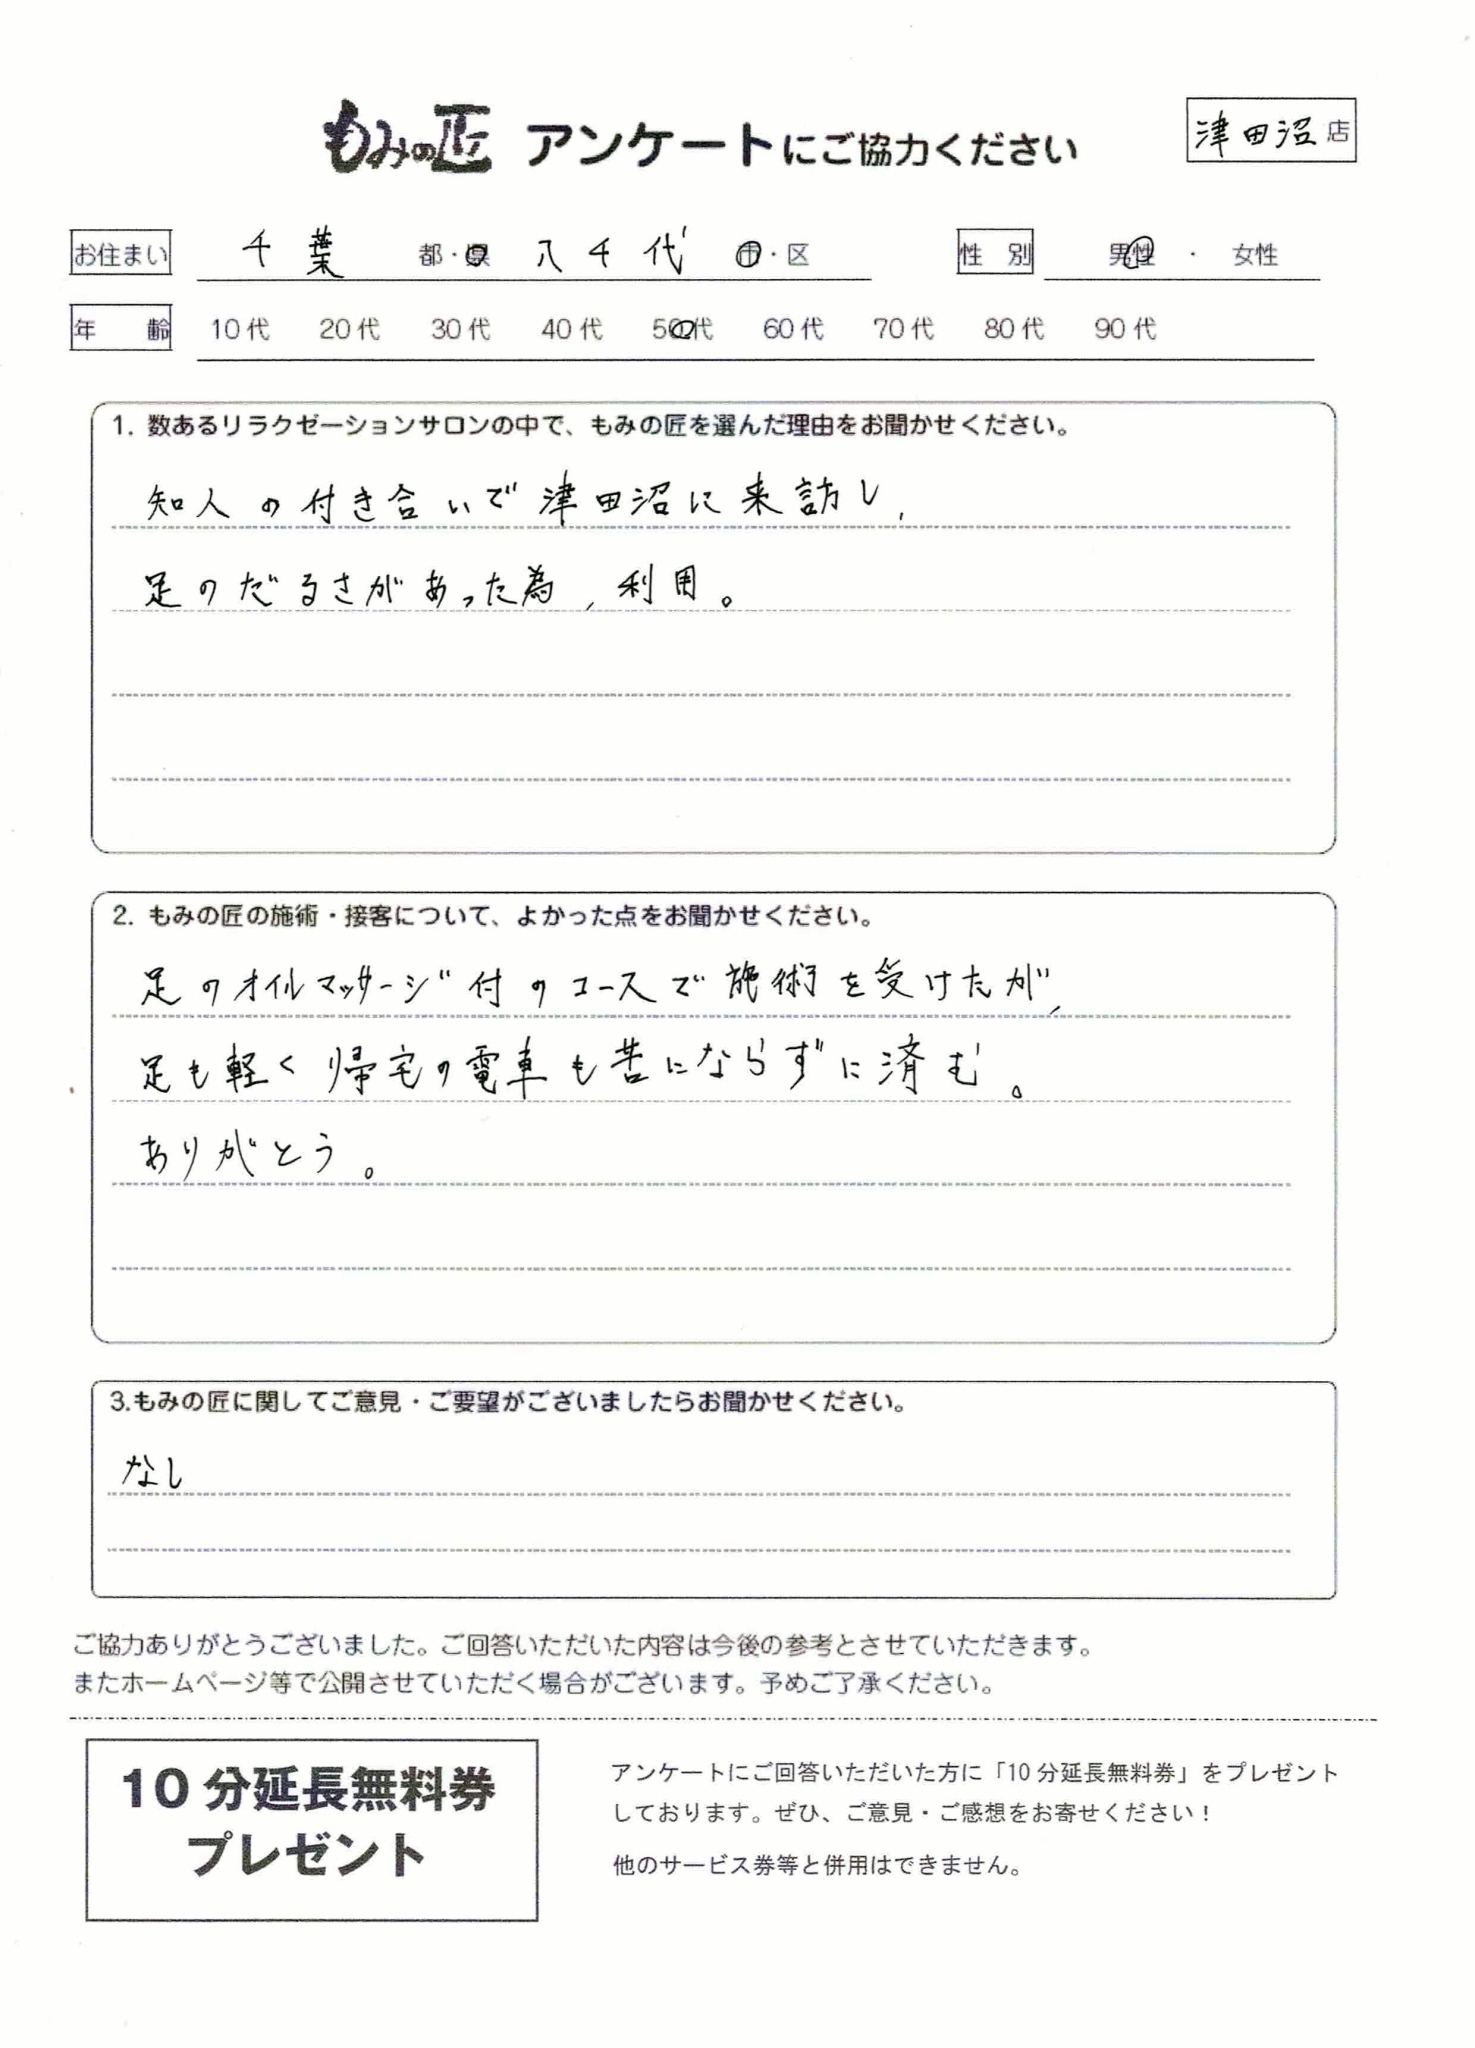 もみの匠 アンケートにご協力ください 津田沼店
お住まい 千葉 都・県 八千代 市・区 性別 男性 ・ 女性
年齢 10代 20代 30代 40代 50代 60代 70代 80代 90代
1. 数あるリラクゼーションサロンの中で、もみの匠を選んだ理由をお聞かせください。
知人の付き合いで津田沼に来訪し、
足のだるさがあった為、利用。
2. もみの匠の施術・接客について、よかった点をお聞かせください。
足のオイルマッサージ付のコースで施術を受けたが、
足も軽く帰宅の電車も苦にならずに済む。
ありがとう。
3.もみの匠に関してご意見・ご要望がございましたらお聞かせください。
なし
ご協力ありがとうございました。ご回答いただいた内容は今後の参考とさせていただきます。
またホームページ等で公開させていただく場合がございます。予めご了承ください。
10分延長無料券
プレゼント
アンケートにご回答いただいた方に「10分延長無料券」をプレゼント
しております。ぜひ、ご意見・ご感想をお寄せください！
他のサービス券等と併用はできません。